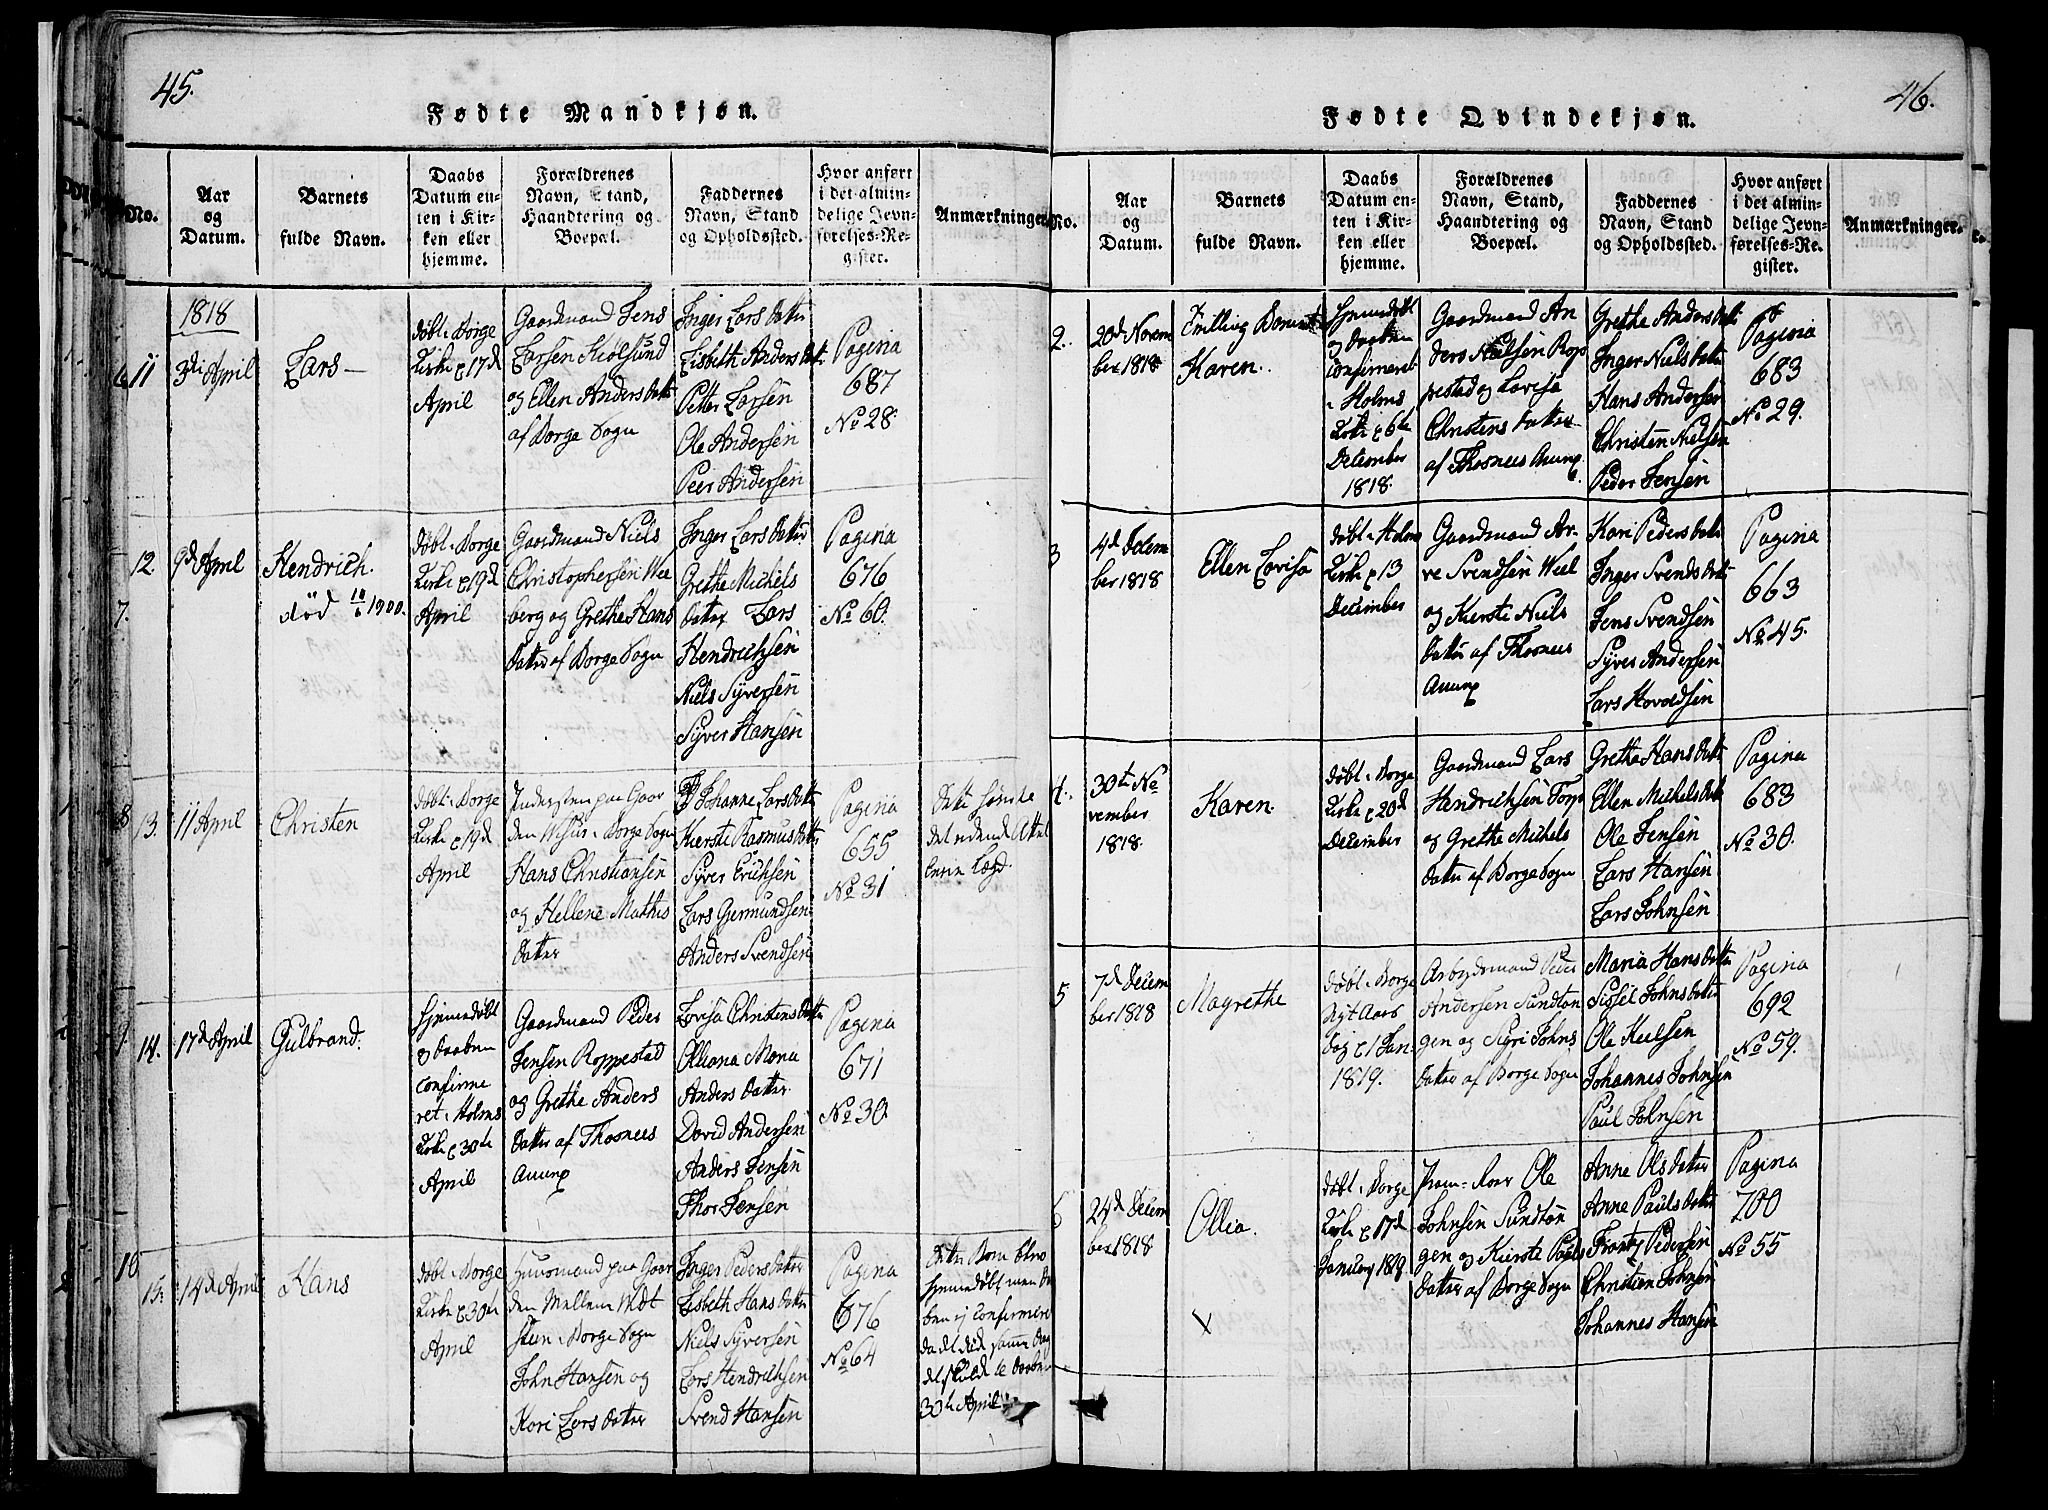 45.
Fødte Mandkjøn.
No.
Aar
og
Datum.
Barnets
fulde Navn.
Daabs
Datum en-
ten i Kir-
ken eller
hjemme.
Forældrenes
Navn, Stand,
Haandtering og
Boepæl.
Faddernes
Navn, Stand
og Opholdssted.
Hvor anført
i det almin-
delige Jevn-
førelses-Re-
gister.
Anmærkninger.
1818
11
3di April
Lars
døbt i Borge
Kirke d 17d
April
Gaardmand Jens
Larsen Kiolsund
og Ellen Anders datter
af Borge Sogn
Inger Lars datter
Lisbeth Anders datt.
Petter Larsen
Ole Andersen
Peer Andersen
Pagina
687
No 28
12
7.
9d April
Hendrich.
død 10/6 1900.
døbt i Borge
Kirke d 19d
April
Gaardmand Niels
Christophersen Wee
berg og Grethe Hans
datter af Borge Sogn
Inger Lars datter
Grethe Michels
datter Lars
Hendrichsen
Niels Syversen
Syver Hansen
Pagina
676
No 60.
8
13.
11 April
Christen
døbt i Borge
Kirke d 19d
April
Hans Christiansen
og Hellene Mathis
datter
Johanne Lars datt
Kierste Rasmus datt
Syver Erichsen
Lars Germundsen
Anders Svendsen
Pagina
655
No 31
9.
14.
17d April
Gulbrand.
Hjemmedøbt
og Daaben
confirme
ret i Holms
Kirke d 30te
April
Gaardmand Peder
Jensen Roppestad
og Grethe Anders
datter af Thosnees
Annex
Lovisa Christens datter
Olliana Maria
Anders datter
David Andersen
Anders Jensen
Thor Jensen
Pagina
671
No 30
10
15.
14d April
Hans
døbt i Borge
Kirke d 30te
April
Huusmand paa Gaar
den Mellem
i Borge Sogn
John Hansen og
Kari Lars datter
Inger Peders datter
Lisbeth Hans datter
Niels Syversen
Lars Hendrichsen
Svend Hansen
Pagina
676
No 64
Dette Barn blev
hjemmedøbt men Da
ben ej confirmeret
da det døde samme Dag
det skulde til Daaben
30te April
46.
Fødte Qvindekjøn.
No.
Aar
og
Datum.
Barnets
fulde Navn.
Daabs
Datum en-
ten i Kir-
ken eller
hjemme.
Forældrenes
Navn, Stand,
Haandtering og
Boepæl.
Faddernes
Navn, Stand
og Opholdssted.
Hvor anført
i det almin-
delige Jevn-
førelses-Re-
gister.
Anmærkninger.
2.
20d Novem
ber 1818
Tvilling Barnet
Karen.
Hjemmedøbt
og Daaben
confirmeret
i Holms
Kirke d 6te
December
1818.
Gaardmand An
ders Nielsen Rop
pestad og Lovisa
Christens datter
af Thosnees Annex
Grethe Anders datt
Inger Niels datter
Hans Andersen
Christen Nielsen
Peder Jensen
Pagina
683
No 29.
3
4d Decem
ber 1818
Ellen Lovisa
døbt i Holms
Kirke d 13
December
Gaardmand Ar
ve Svendsen Weel
og Kierste Niels
datter af Thosnees
Annex
Kari Peders datter
Inger Svends datt
Jens Svendsen
Syver Andersen
Lars Havoldsen
Pagina
663
No 45.
4.
30te No
vember
1818.
Karen.
døbt i Borge
Kirke d 20d
December
Gaardmand Lars
Hendrichsen Torp
og Grethe Michels
datter af Borge Sogn
Grethe Hans datter
Ellen Michels datt
Ole Jensen
Lars Hansen
Lars Johnsen
Pagina
683
No 30.
5
7d Decem
ber 1818
Magrethe
døbt i Borge
Nyt Aars
dag d 1 Jan-
1819.
Arbejdsmand Peder
Andersen Sundtan
gen og Sigri Johns
datter af Borge Sogn
Maria Hans datter
Sissel Johns datter
Ole Keilsen
Johannes Johnsen
Paul Johnsen
Pagina
692
No 59.
6
24d Decem
ber 1818.
Ollia.
X
døbt i Borge
Kirke d 17d
Januarj 1819
Pram-Roer Ole
Johnsen Sundtan
gen og Kierste Pauls
datter af Borge Sogn
Anne Ols datter
Anne Pauls datter
Frantz Pedersen
Christian Johnsen
Johannes Hansen
Pagina
700
No 55